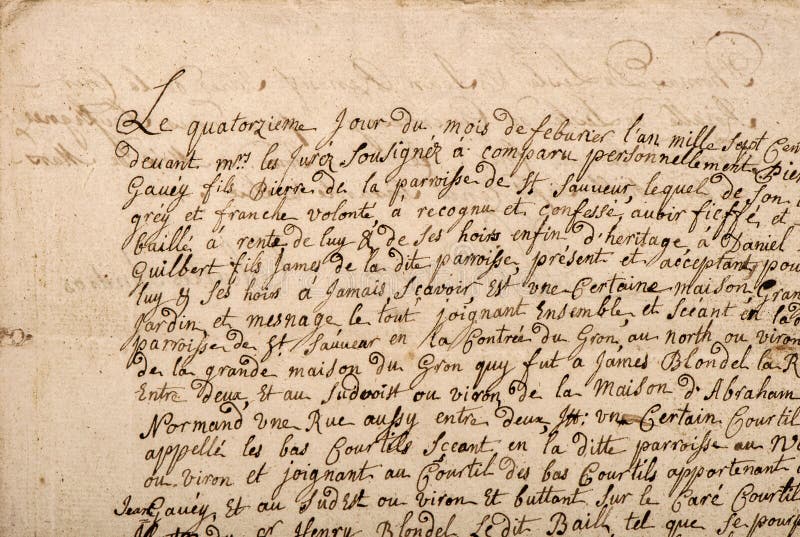 Le quatorzieme Jour du mois de feburier l'an mille Sept Cen
devant mrs les Juréz Sousignez a comparu personnellement Pier
Gavéy fils Pierre de la parroisse de St Sauveur, lequel de Son
gréy et franche volonté, à recognu et confessé, aubir fieffé, et
baillé à rente de luy & de ses hoirs enfin d'heritage, à Daniel
Guilbert fils James de la dite parroisse, présent et acceptant, pou
luy & ses hoirs à Jamais, Sçavoir, Est une Certaine maison, Gran
Jardin, et mesnage le tout joignant Ensemble et Scéant en la
parroisse de St Sauveur en la Contrée du Gron, au north ou viron
de la grande maison du Gron quy fut a James Blondel la R
Entre deux, Et au Sudvoist ou viron de la Maison d'Abraham
Normand Vne Rue aussy entre deux, Itt: vn Certain Courtil
appellé les bas Courtils Sceant en la ditte parroisse au No
ou viron et joignant au Courtil des bas Courtils appartenant a
Jean Gavéy, Et au SudEst ou viron Et buttant Sur le Caré Courtil
du Sr Henry Blondel Le dit Baill tel que se pourp